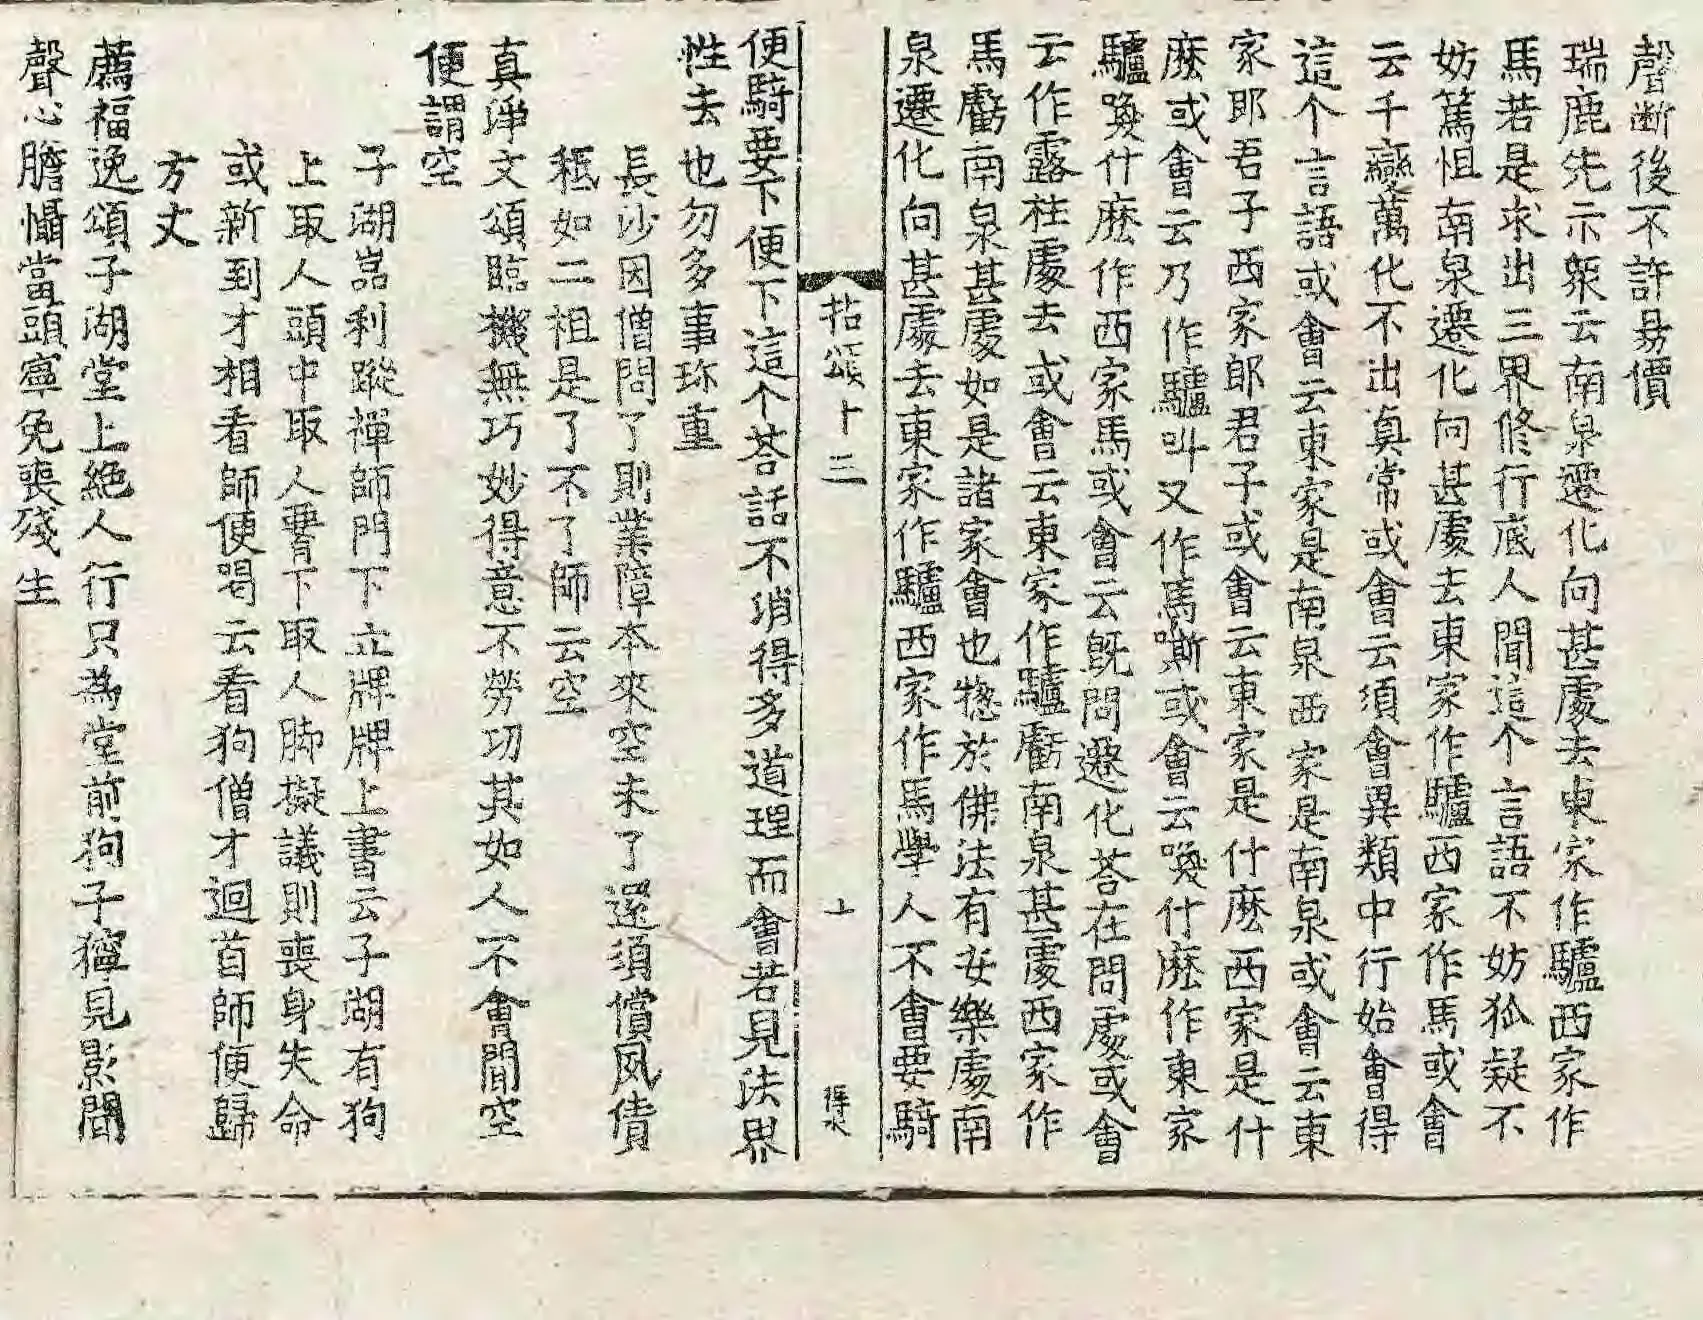 聲断後不許昜價
瑞鹿先示衆云南泉遷化向甚處去東家作驢西家作
馬若是求出三界修行底人聞這个言語不妨狐疑不
妨篤怛南泉遷化向甚處去東家作驢西家作馬或會
云千變萬化不出真常或會云須會異類中行始會得
這个言語或會云東家是南泉西家是南泉或會云東
家郎君子西家郎君子或會云東家是什麽西家是什
麽或會云乃作驢叫又作馬嘶或會云喚什麽作東家
驢喚什麽作西家馬或會云旣問遷化荅在問處或會
云作露柱處去或會云東家作驢虧南泉甚處西家作
馬虧南泉甚處如是諸家會也㹅於佛法有安樂處南
泉遷化向甚處去東家作驢西家作馬學人不會要騎
拈頌十三
便騎要下便下這个荅話不消得多道理而會若見法界
性去也勿多事珎重
長沙因僧問了則業障本來空未了還須償夙債
秪如二祖是了不了師云空
真淨文頌臨機無巧妙得意不勞切其如人不會聞空
便謂空
子湖嵓利蹤禪師門下立牌牌上書云子湖有狗
上取人頭中取人㬽下取人脚擬議則喪身失命
或新到才相看師便喝云看狗僧才迴首師便歸
方丈
薦福逸頌子湖堂上絶人行只為堂前狗子獰見影聞
聲心膽懾當頭寧免喪殘生